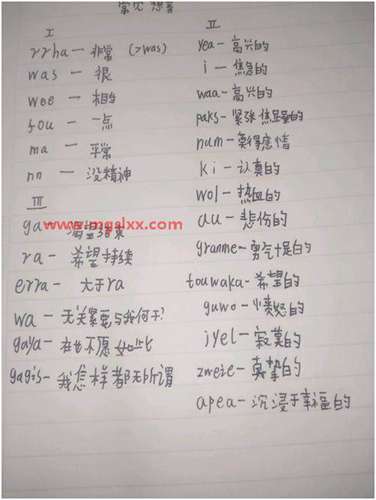 常见想音
I
rrha — 非常 (>was)
was — 很
wee — 相当
fou — 一点
ma — 平常
nn — 没精神
III
ga
www.mgslxx.com
ra — 希望持续
erra — 大于ra
wa — 无关紧要与我何干?
gaya —
gagis — 我怎样都无所谓
II
yea — 高兴的
i — 焦急的
waa — 高兴的
paks — 紧张
num — 莫得感情
ki — 认真的
wol — 热血的
au — 悲伤的
granme — 勇气十足的
touwaka — 希望的
guwo — 愤怒的
jyel — 寂寞的
zweie — 真挚的
apea — 沉浸于幸福的